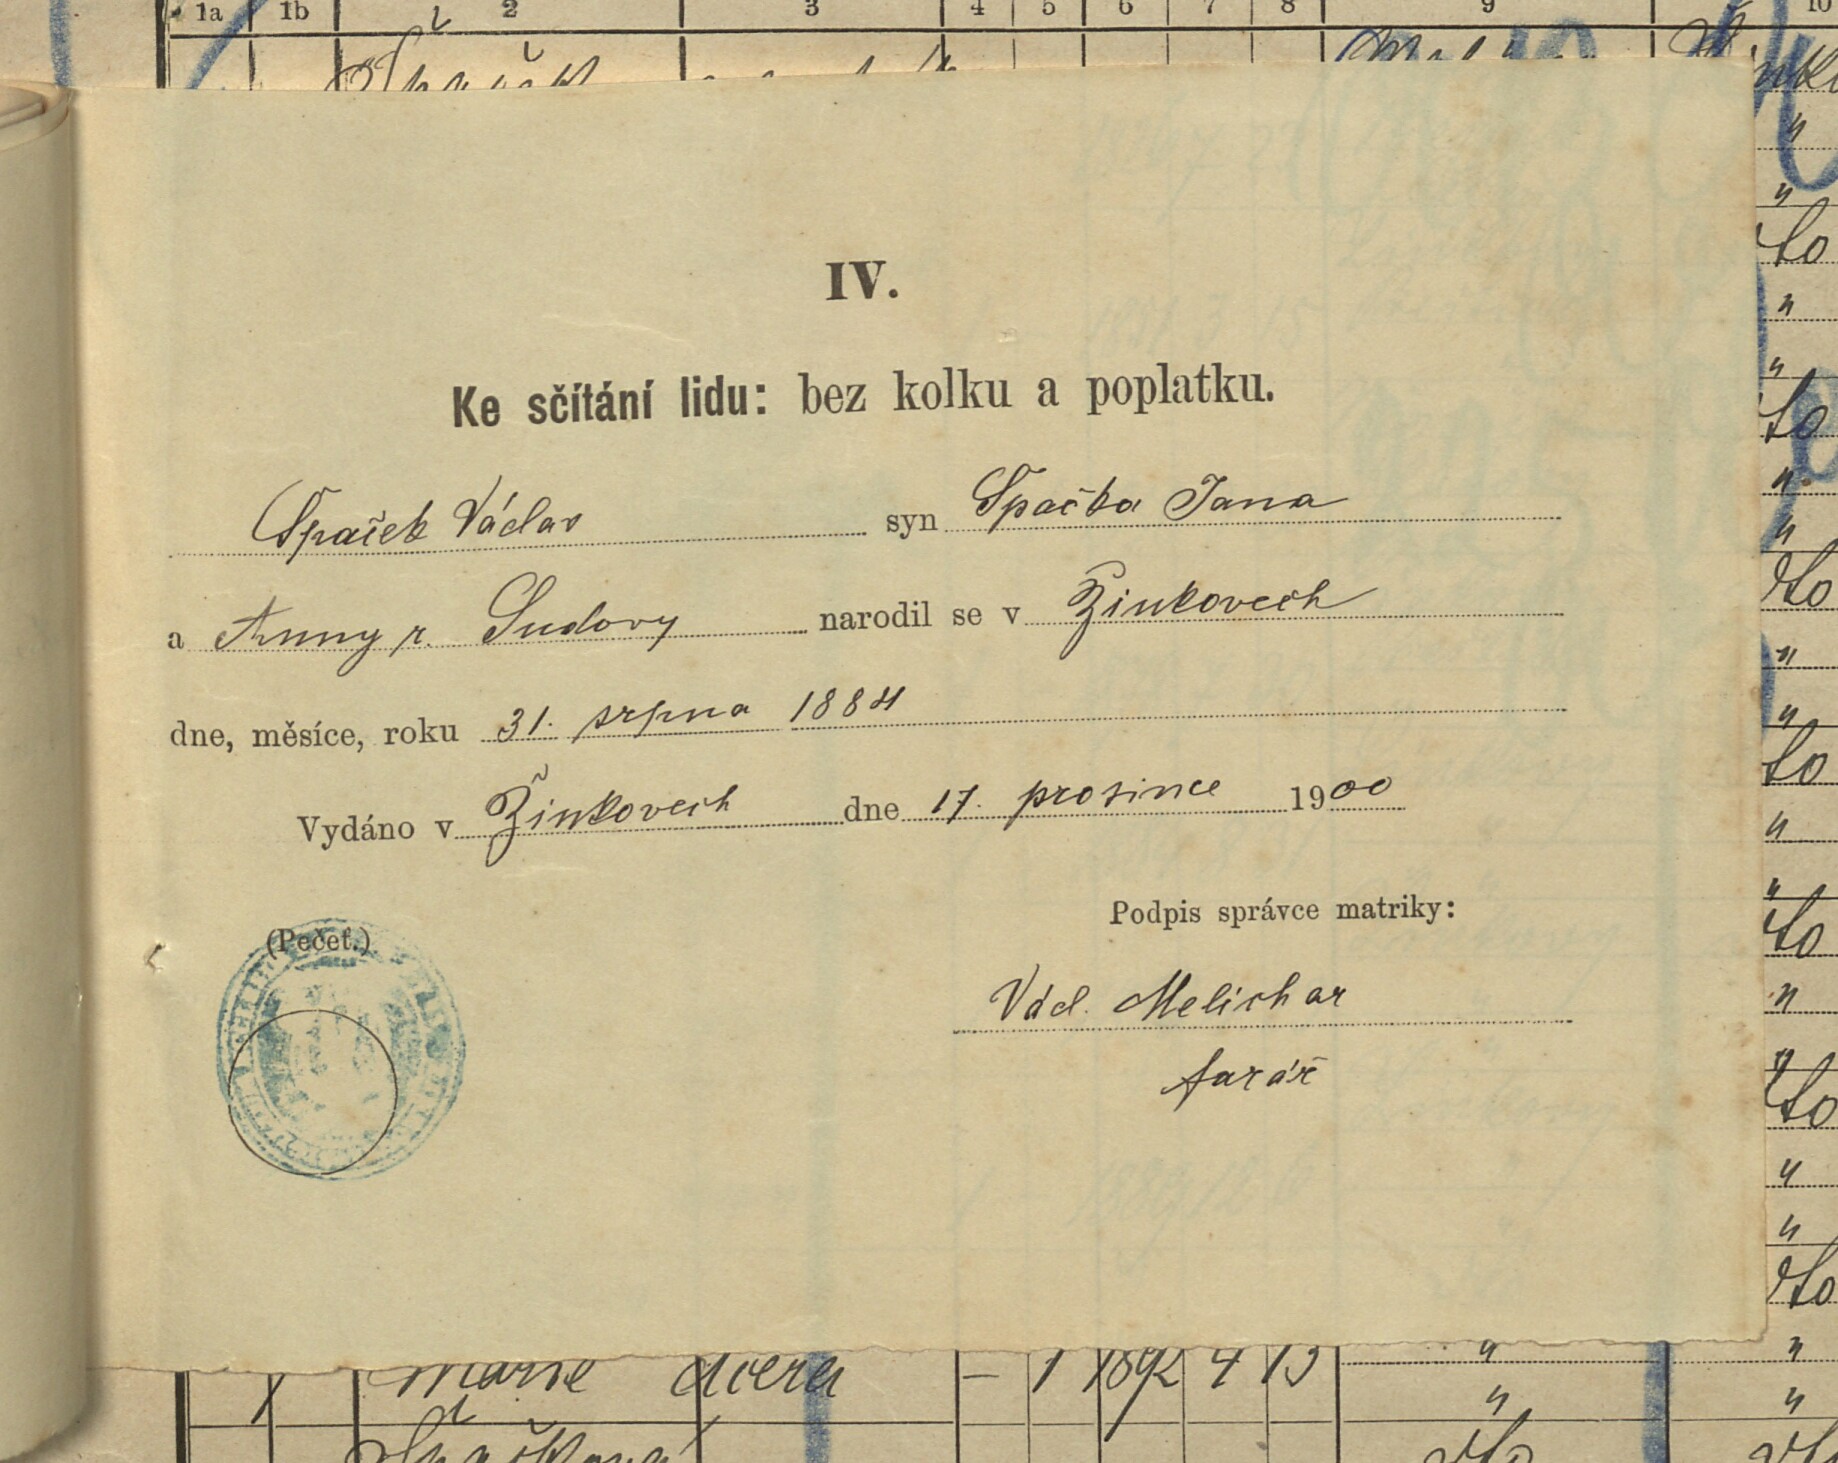 1a 1b 2 3 4 5 6 7 8 9 10
IV.
Ke sčítání lidu: bez kolku a poplatku.
Špaček Václav syn Špačka Jana
a Anny r. Sudovy narodil se v Žinkovech
dne, měsíce, roku 31. srpna 1884
Vydáno v Žinkovech dne 17. prosince 1900
(Pečeť.)
Podpis správce matriky:
Václ. Melichar
farář
Marie dcera — 1 1892 4 13 "